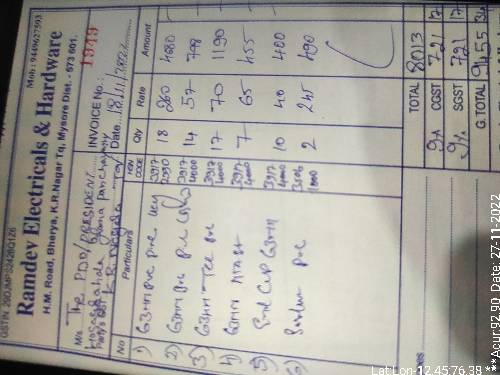 GSTIN 29DJMPS2428Q1Z6
Mob : 9449627593
Ramdev Electricals & Hardware
H.M. Road, Bharya, K.R.Nagar Tq, Mysore Dist. - 673 601.
M/s The PDO/PRESIDENT
INVOICE No.: 1949
grama panchayathi
Party's GST
Date 18/11/2022
No Particulars HSN CODE Qty Rate Amount
1) 63mm pvc pipe 3917 18 260 4680
2) 63mm 3917 4000 14 57 798
3) 63mm Tee 3917 4000 17 70 1190
4) 63mm 3917 4000 7 65 455
5) End Cap 63mm 3917 4000 10 40 400
6) 2 245 490
TOTAL 8013
9% CGST 721 17
9% SGST 721 17
G.TOTAL 9455 34
Lat:Lon-12.4576,38 **Aqur:92.90 Date: 27-11-2022